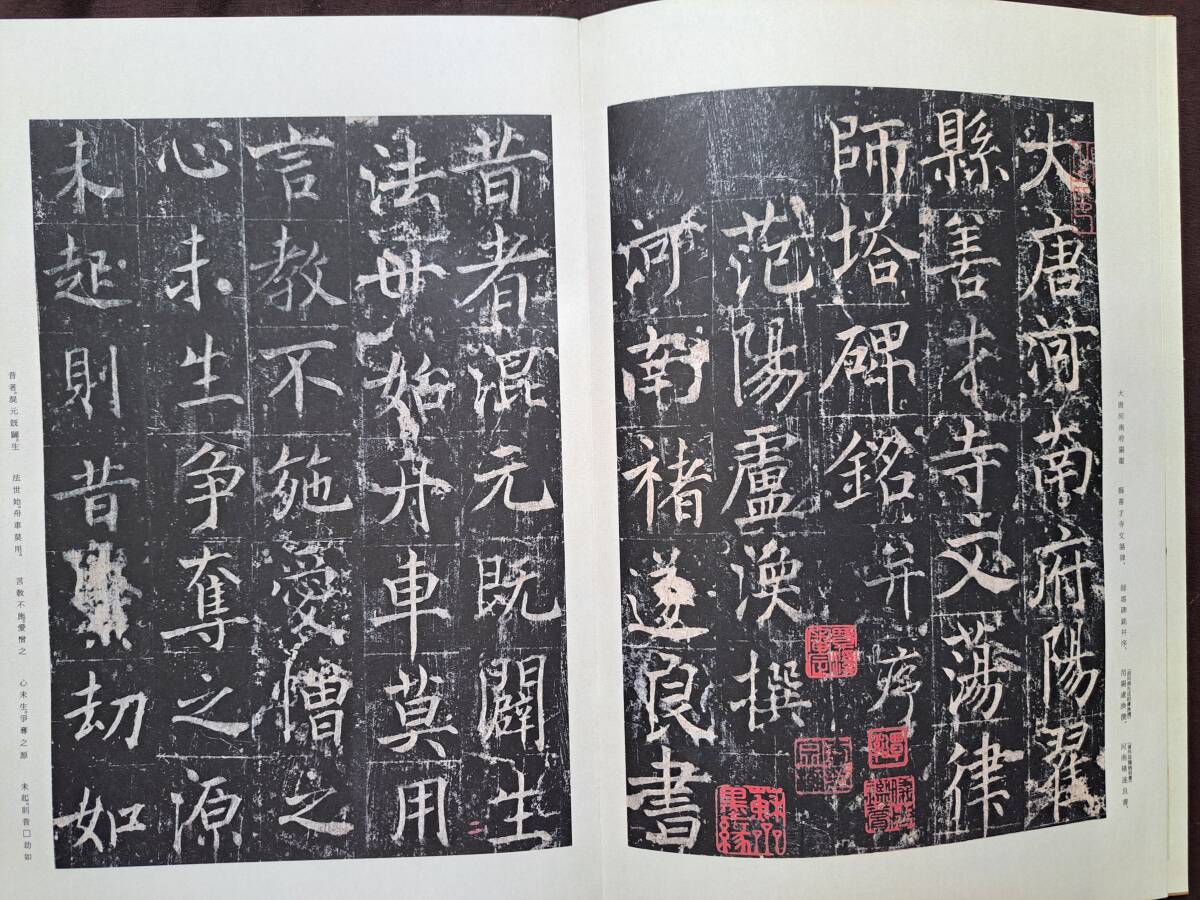 大唐河南府陽翟
縣善才寺文蕩律
師塔碑銘并序
范陽盧渙撰
河南褚遂良書
大唐河南府陽翟
縣善才寺文蕩律
師塔碑銘并序
范陽盧渙撰
河南褚遂良書
昔者混元既闢生
法世始舟車莫用
言教不施愛憎之
心未生爭奪之源
未起則昔劫如
二
昔者。混元既闢。生
法世始。舟車莫用。
言教不施。愛憎之
心未生。爭奪之源
未起。則昔□劫如